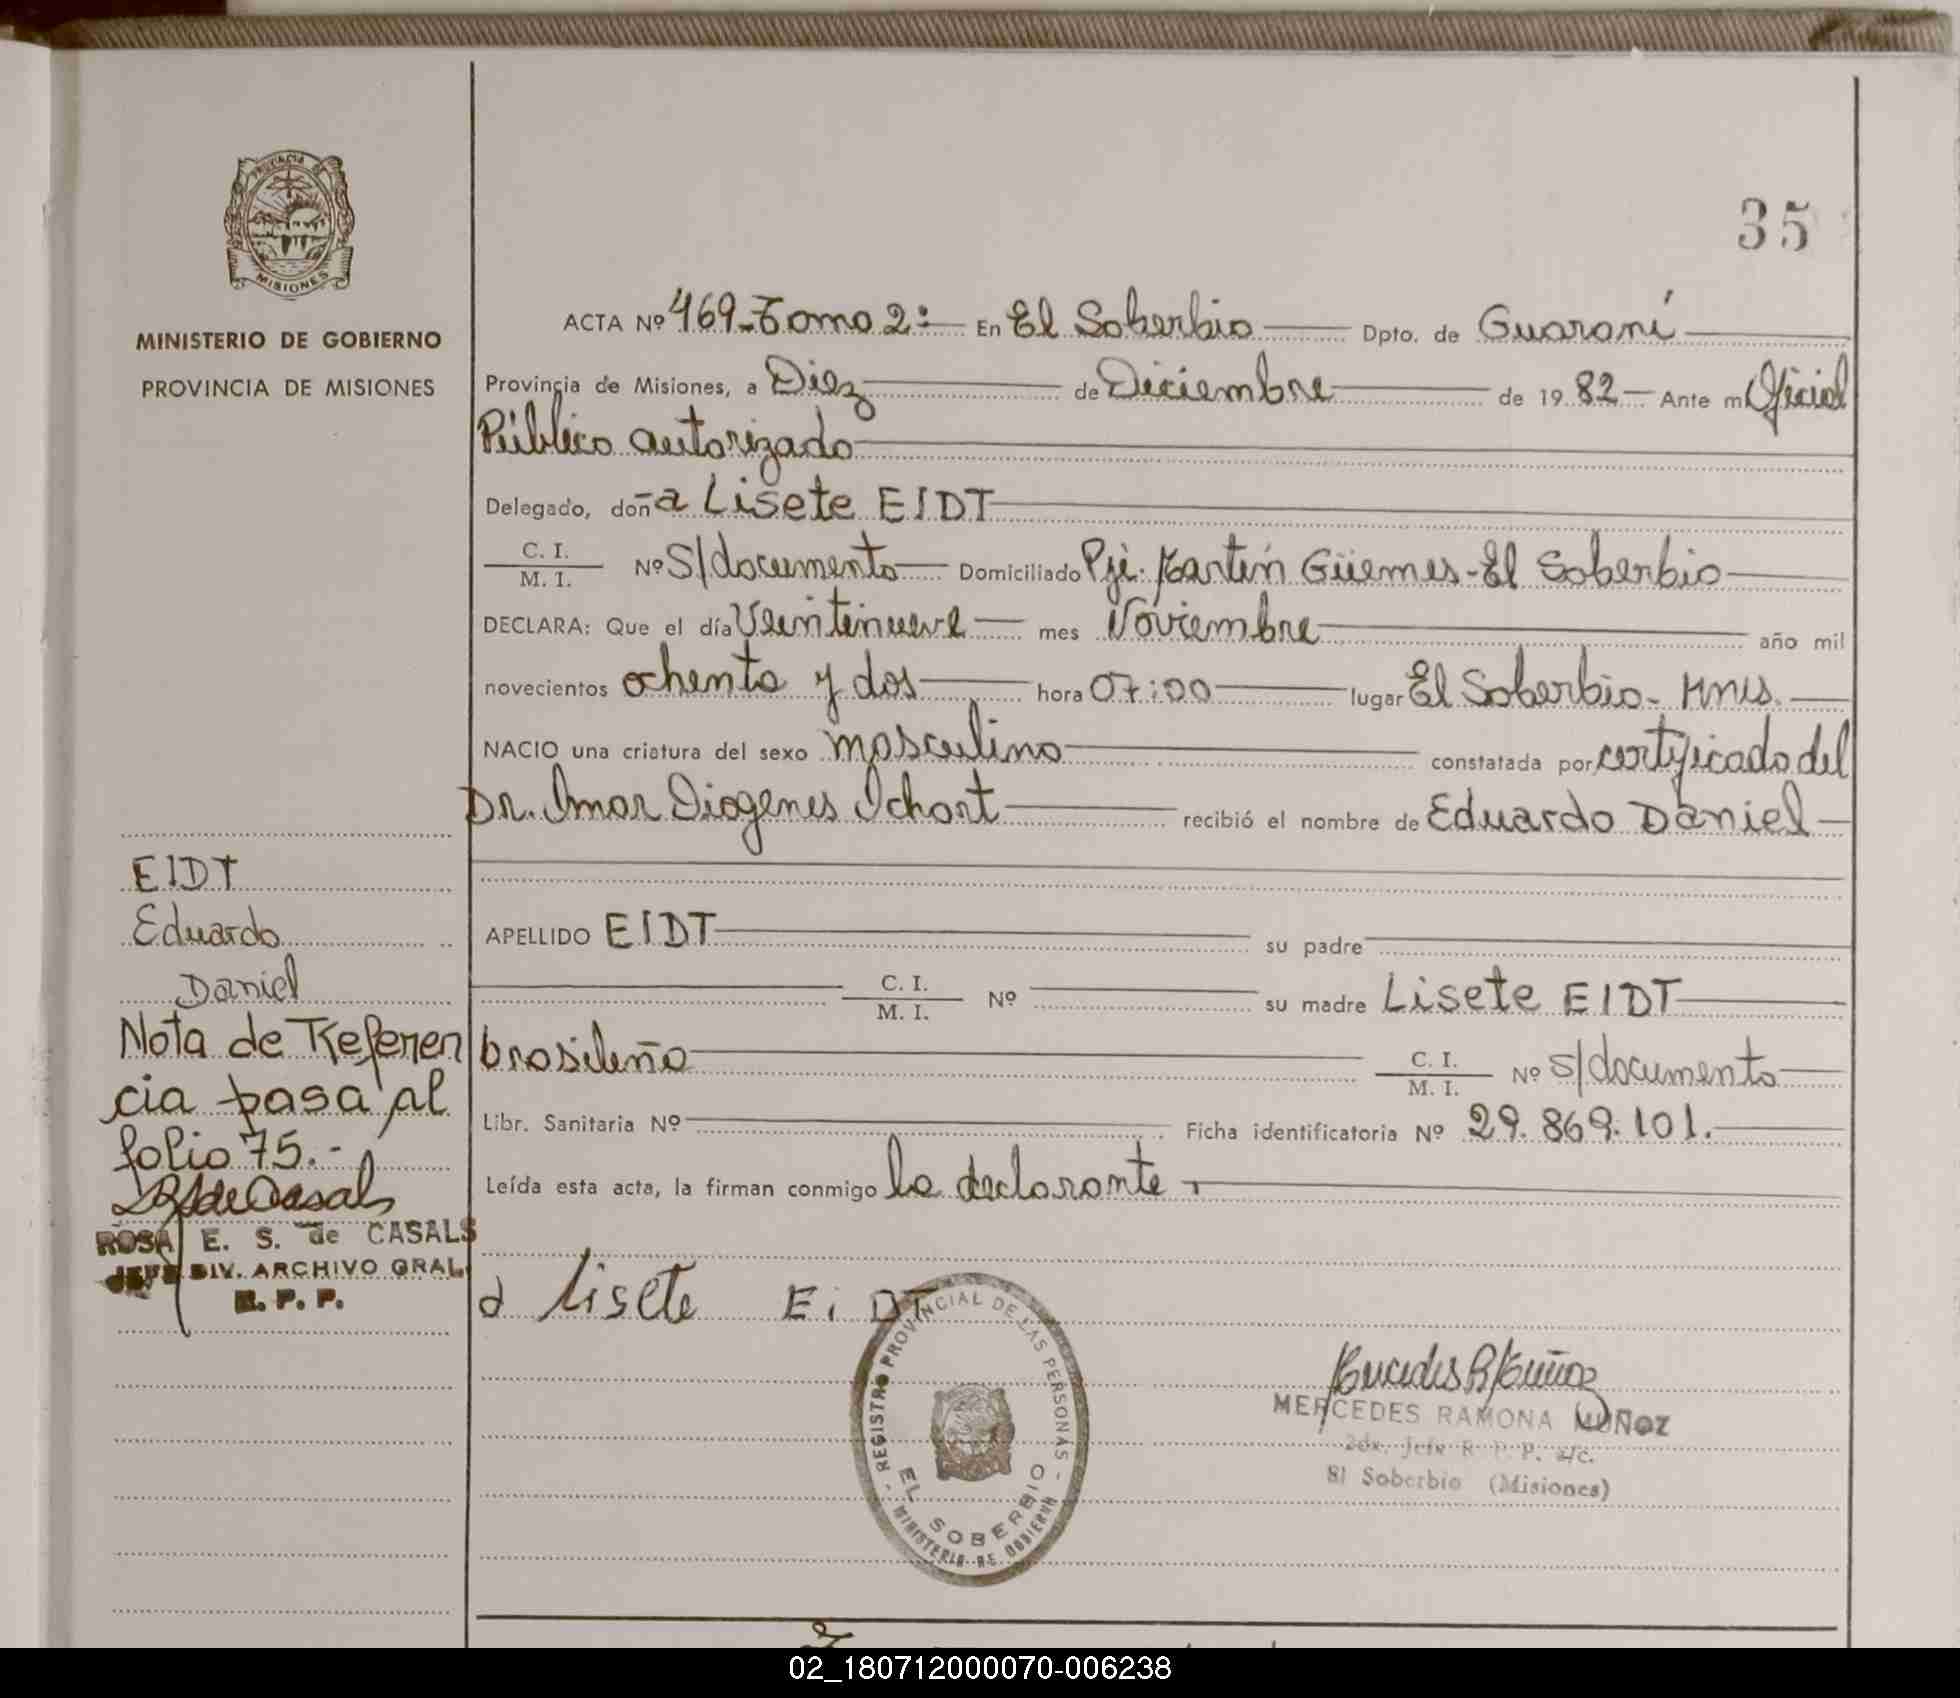 PROVINCIA DE
MISIONES
MINISTERIO DE GOBIERNO
PROVINCIA DE MISIONES
35
ACTA Nº 469-Tomo 2º En El Soberbio Dpto. de Guaraní
Provincia de Misiones, a Diez de Diciembre de 1982 Ante mí Oficial
Público autorizado
Delegado, doña Lisete EIDT
C. I.
M. I. Nº S/documento Domiciliado Pje. Martín Güemes-El Soberbio
DECLARA: Que el día Veintinueve mes Noviembre año mil
novecientos ochenta y dos hora 07:00 lugar El Soberbio- Mnes.
NACIO una criatura del sexo masculino constatada por certificado del
Dr. Omar Diogenes Ichart recibió el nombre de Eduardo Daniel
APELLIDO EIDT su padre
C. I.
M. I. Nº su madre Lisete EIDT
brasileña C. I.
M. I. Nº S/documento
Libr. Sanitaria Nº Ficha identificatoria Nº 29.869.101.
Leída esta acta, la firman conmigo la declarante
EIDT
Eduardo
Daniel
Nota de Referen
cia pasa al
folio 75.-
ROSA E. S. de CASALS
JEFE DIV. ARCHIVO GRAL.
R. P. P.
Lisete EiDT
REGISTRO PROVINCIAL DE LAS PERSONAS
EL SOBERBIO
MINISTERIO DE GOBIERNO
Mercedes R Muñoz
MERCEDES RAMONA MUÑOZ
2da. Jefe R. P. P. a/c.
El Soberbio (Misiones)
02_180712000070-006238